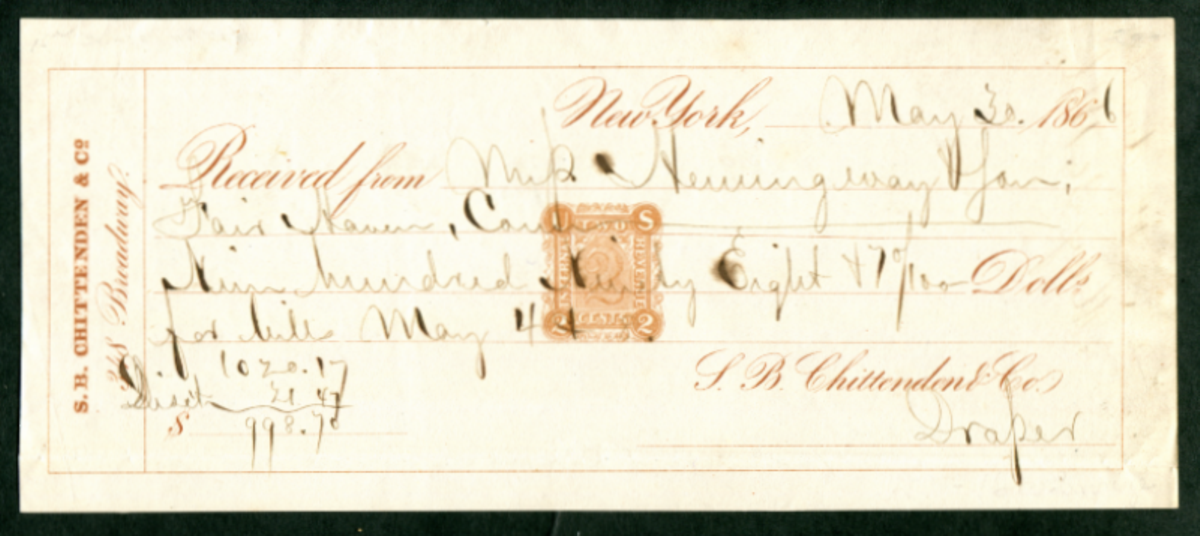 S. B. CHITTENDEN & Co
248 Broadway.
New York, May 30. 1866
Received from Hemingway & Son,
Fair Haven, Conn
Nine hundred Ninety Eight & 70/100 Dolls
for bill May 4
1020.17
21.47
$ 998.70
S. B. Chittenden & Co
Draper